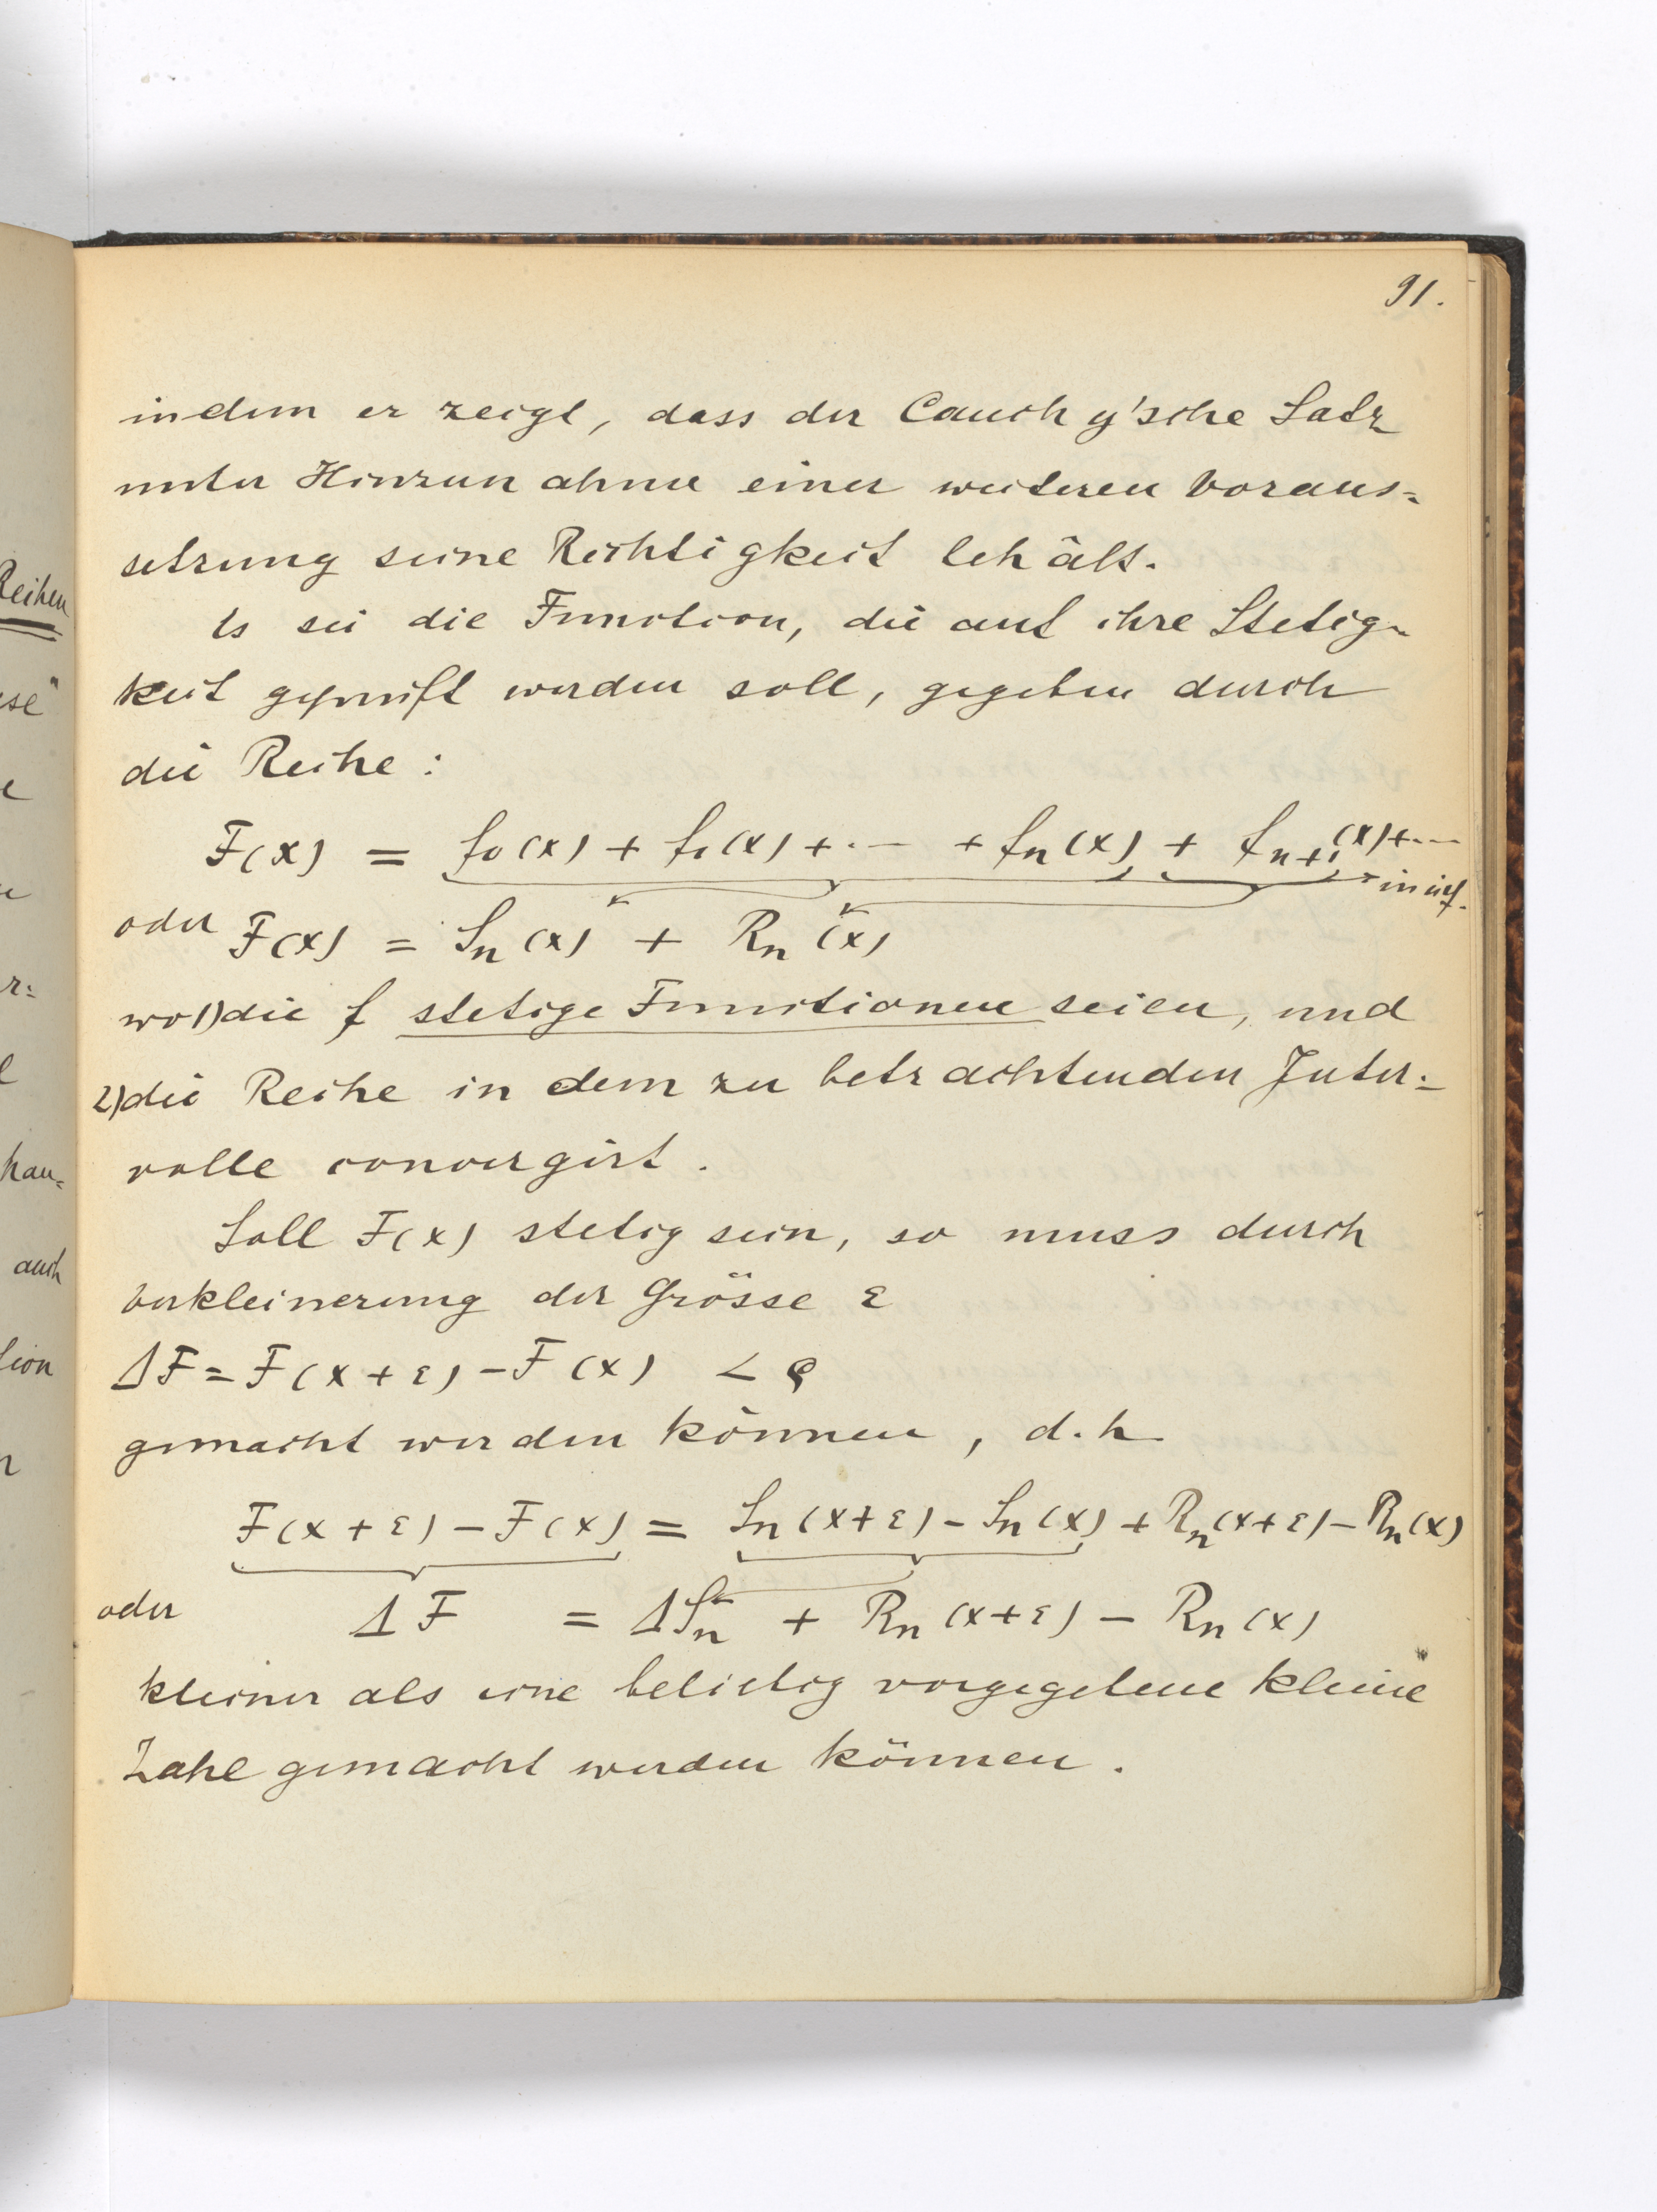 91.
indem er zeigt, dass der Cauchy'sche Satz
unter Hinzunahme einer weiteren Voraus=
setzung seine Richtigkeit behält.
Es sei die Function, die auf ihre Stetig=
keit geprüft werden soll, gegeben durch
die Reihe :
F(x) = f₀(x) + f₁(x) + ... + fₙ(x) + fₙ₊₁(x) + ... in inf.
oder F(x) = Sₙ(x) + Rₙ(x)
wo 1) die f stetige Functionen seien, und
2) die Reihe in dem zu betrachtenden Inter=
valle convergirt.
Soll F(x) stetig sein, so muss durch
Verkleinerung der Grösse ε
ΔF = F(x+ε) − F(x) < ϱ
gemacht werden können, d.h.
F(x+ε) − F(x) = Sₙ(x+ε) − Sₙ(x) + Rₙ(x+ε) − Rₙ(x)
oder ΔF = ΔSₙ + Rₙ(x+ε) − Rₙ(x)
kleiner als eine beliebig vorgegebene kleine
Zahl gemacht werden können.
Reihen
auch